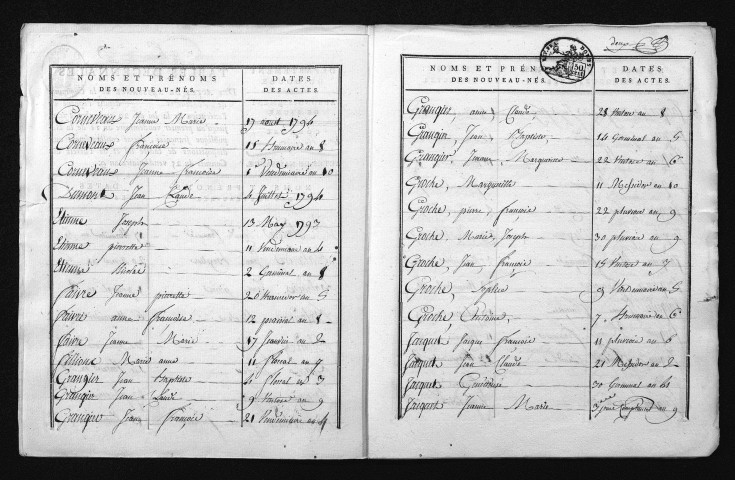 NOMS ET PRÉNOMS DES NOUVEAU-NÉS.
DATES DES ACTES.
Cornevaux Jeanne Marie 17 aout 1794
Cornevaux françoise 15 Brumaire an 8
Cornevaux Jeanne françoise 6 Vendemiaire an 10
Dumont Jean Claude 4 Juillet 1794
Etienne Joseph 13 May 1793
Etienne pierrette 11 Vendemiaire an 4
Etienne Nicolas 2 Germinal an 8
faivre Jeanne pierrette 26 thermidor an 5
faivre anne françoise 12 prairial an 8
faivre Jeanne Marie 17 an 2
Marie anne 11 floreal an 7
Grangier Jean baptiste 4 floreal an 3
Grangier Jean Claude 9 Ventose an 9
Grangier Jean françois 21 Vendemiaire an 4
deux
NOMS ET PRÉNOMS DES NOUVEAU-NÉS.
DATES DES ACTES.
Grangier anne Claude 28 Ventose an 8
Grangier Jean Baptiste 14 Germinal an 5
Grangier Jeanne Marguerite 22 Ventose an 6
Groche Marguerite 11 Messidor an 10
Groche pierre françois 22 pluviose an 9
Groche Marie Joseph 30 pluviose an 9
Groche Jean françois 15 Ventose an 7
Groche 9 Vendemiaire an 5
Groche Antoine 7 Brumaire an 6
Jacquot Jacque françois 11 pluviose an 6
Jacquot Jean Claude 21 Messidor an 2
Jacquot 30 Germinal an 4
Jacquot Jeanne Marie 3eme jour Complement. an 9